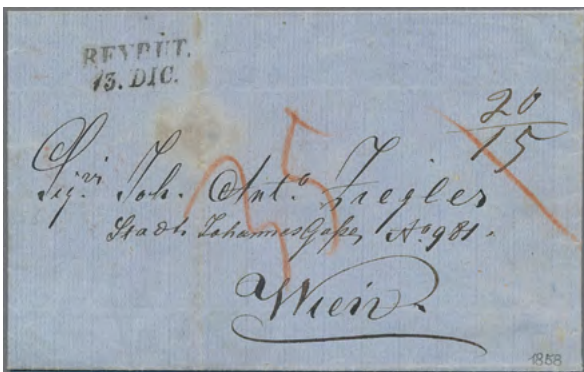 BEYRUT.
13. DIC.
20
15
35
Sig.ri Joh. Ant.o Ziegler
Stadt Johannes Gaße, No 981.
Wien.
1858